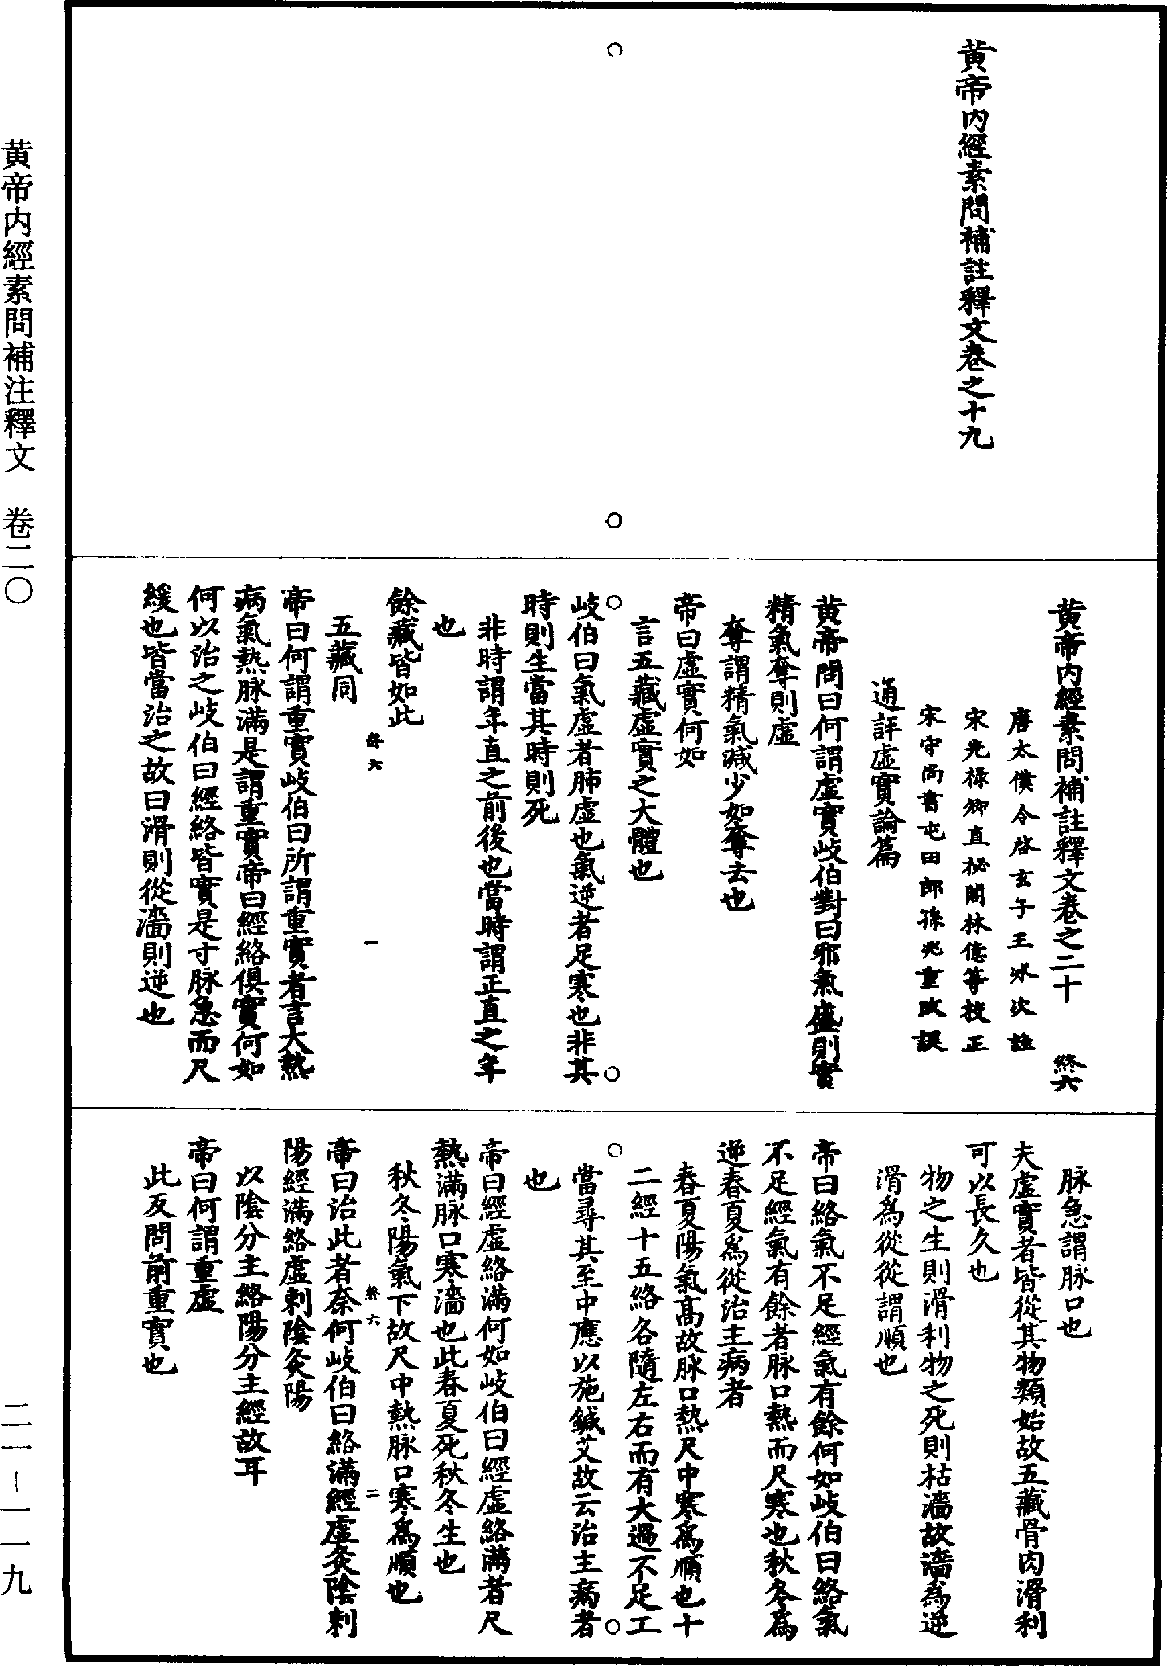 黃帝內經素問補註釋文卷之十九
黃帝內經素問補註釋文卷之二十 終六
唐太僕令啓玄子王冰次註
宋光祿卿直秘閣林億等校正
宋守尚書屯田郎孫兆重改誤
通評虛實論篇
黃帝問曰何謂虛實岐伯對曰邪氣盛則實
精氣奪則虛
奪謂精氣減少如奪去也
帝曰虛實何如
言五藏虛實之大體也
岐伯曰氣虛者肺虛也氣逆者足寒也非其
時則生當其時則死
非時謂年直之前後也當時謂正直之年
也
餘藏皆如此
五藏同
終六 一
帝曰何謂重實岐伯曰所謂重實者言大熱
病氣熱脉滿是謂重實帝曰經絡俱實何如
何以治之岐伯曰經絡皆實是寸脉急而尺
緩也皆當治之故曰滑則從濇則逆也
脉急謂脉口也
夫虛實者皆從其物類始故五藏骨肉滑利
可以長久也
物之生則滑利物之死則枯濇故濇為逆
滑為從從謂順也
帝曰絡氣不足經氣有餘何如岐伯曰絡氣
不足經氣有餘者脉口熱而尺寒也秋冬為
逆春夏為從治主病者
春夏陽氣高故脉口熱尺中寒為順也十
二經十五絡各隨左右而有大過不足工
當尋其至中應以施鍼艾故云治主病者
也
帝曰經虛絡滿何如岐伯曰經虛絡滿者尺
熱滿脉口寒濇也此春夏死秋冬生也
秋冬陽氣下故尺中熱脉口寒為順也
終六 二
帝曰治此者奈何岐伯曰絡滿經虛灸陰刺
陽經滿絡虛刺陰灸陽
以陰分主絡陽分主經故耳
帝曰何謂重虛
此反問前重實也
黃帝內經素問補注釋文 卷二〇
二一—一一九